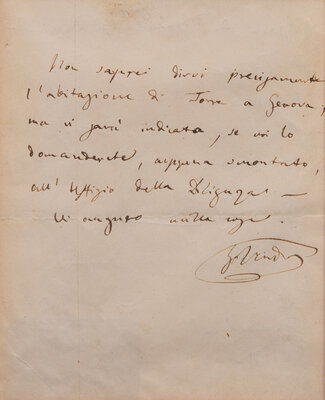 Non saprei dirvi precisamente
l'abitazione di Torre a Genova,
ma vi sarà indicata, se voi lo
domanderete, appena smontato,
all'Uffizio della
Vi auguro mille cose.
G. Verdi